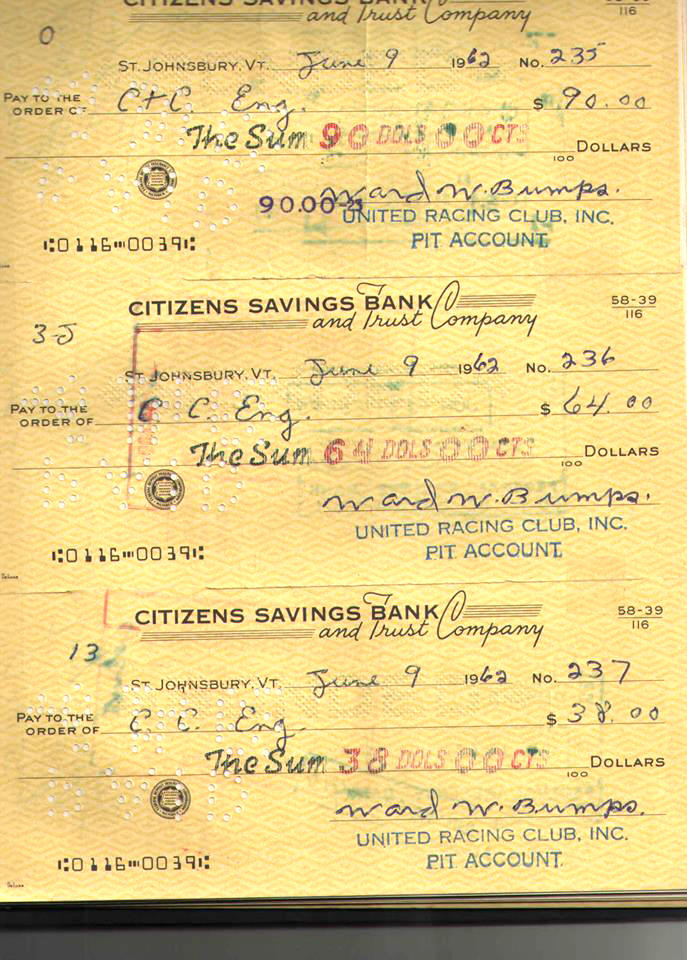 CITIZENS SAVINGS BANK 58-39
and Trust Company 116
0
ST. JOHNSBURY, VT. June 9 1962 No. 235
PAY TO THE
ORDER OF C+C. Eng. $ 90.00
The Sum 90 DOLS 00 CTS DOLLARS
100
Ward W. Bumps.
90.00
UNITED RACING CLUB, INC.
PIT ACCOUNT
⑆0116⑉0039⑆
CITIZENS SAVINGS BANK 58-39
and Trust Company 116
3-J
ST. JOHNSBURY, VT. June 9 1962 No. 236
PAY TO THE
ORDER OF C C. Eng. $ 64.00
The Sum 64 DOLS 00 CTS DOLLARS
100
Ward W. Bumps.
UNITED RACING CLUB, INC.
PIT ACCOUNT
⑆0116⑉0039⑆
Deluxe
CITIZENS SAVINGS BANK 58-39
and Trust Company 116
13
ST. JOHNSBURY, VT. June 9 1962 No. 237
PAY TO THE
ORDER OF C. C. Eng. $ 38.00
The Sum 38 DOLS 00 CTS DOLLARS
100
Ward W. Bumps.
UNITED RACING CLUB, INC.
PIT ACCOUNT
⑆0116⑉0039⑆
Deluxe